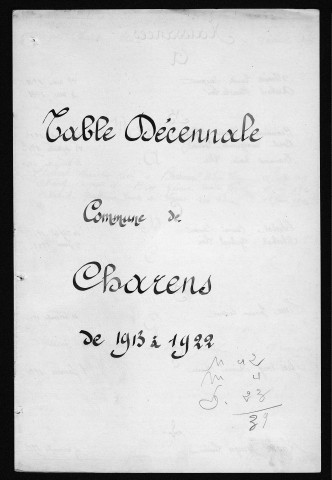 Table Décennale
Commune de
Charens
de 1913 à 1922
N
M
D. 23
39